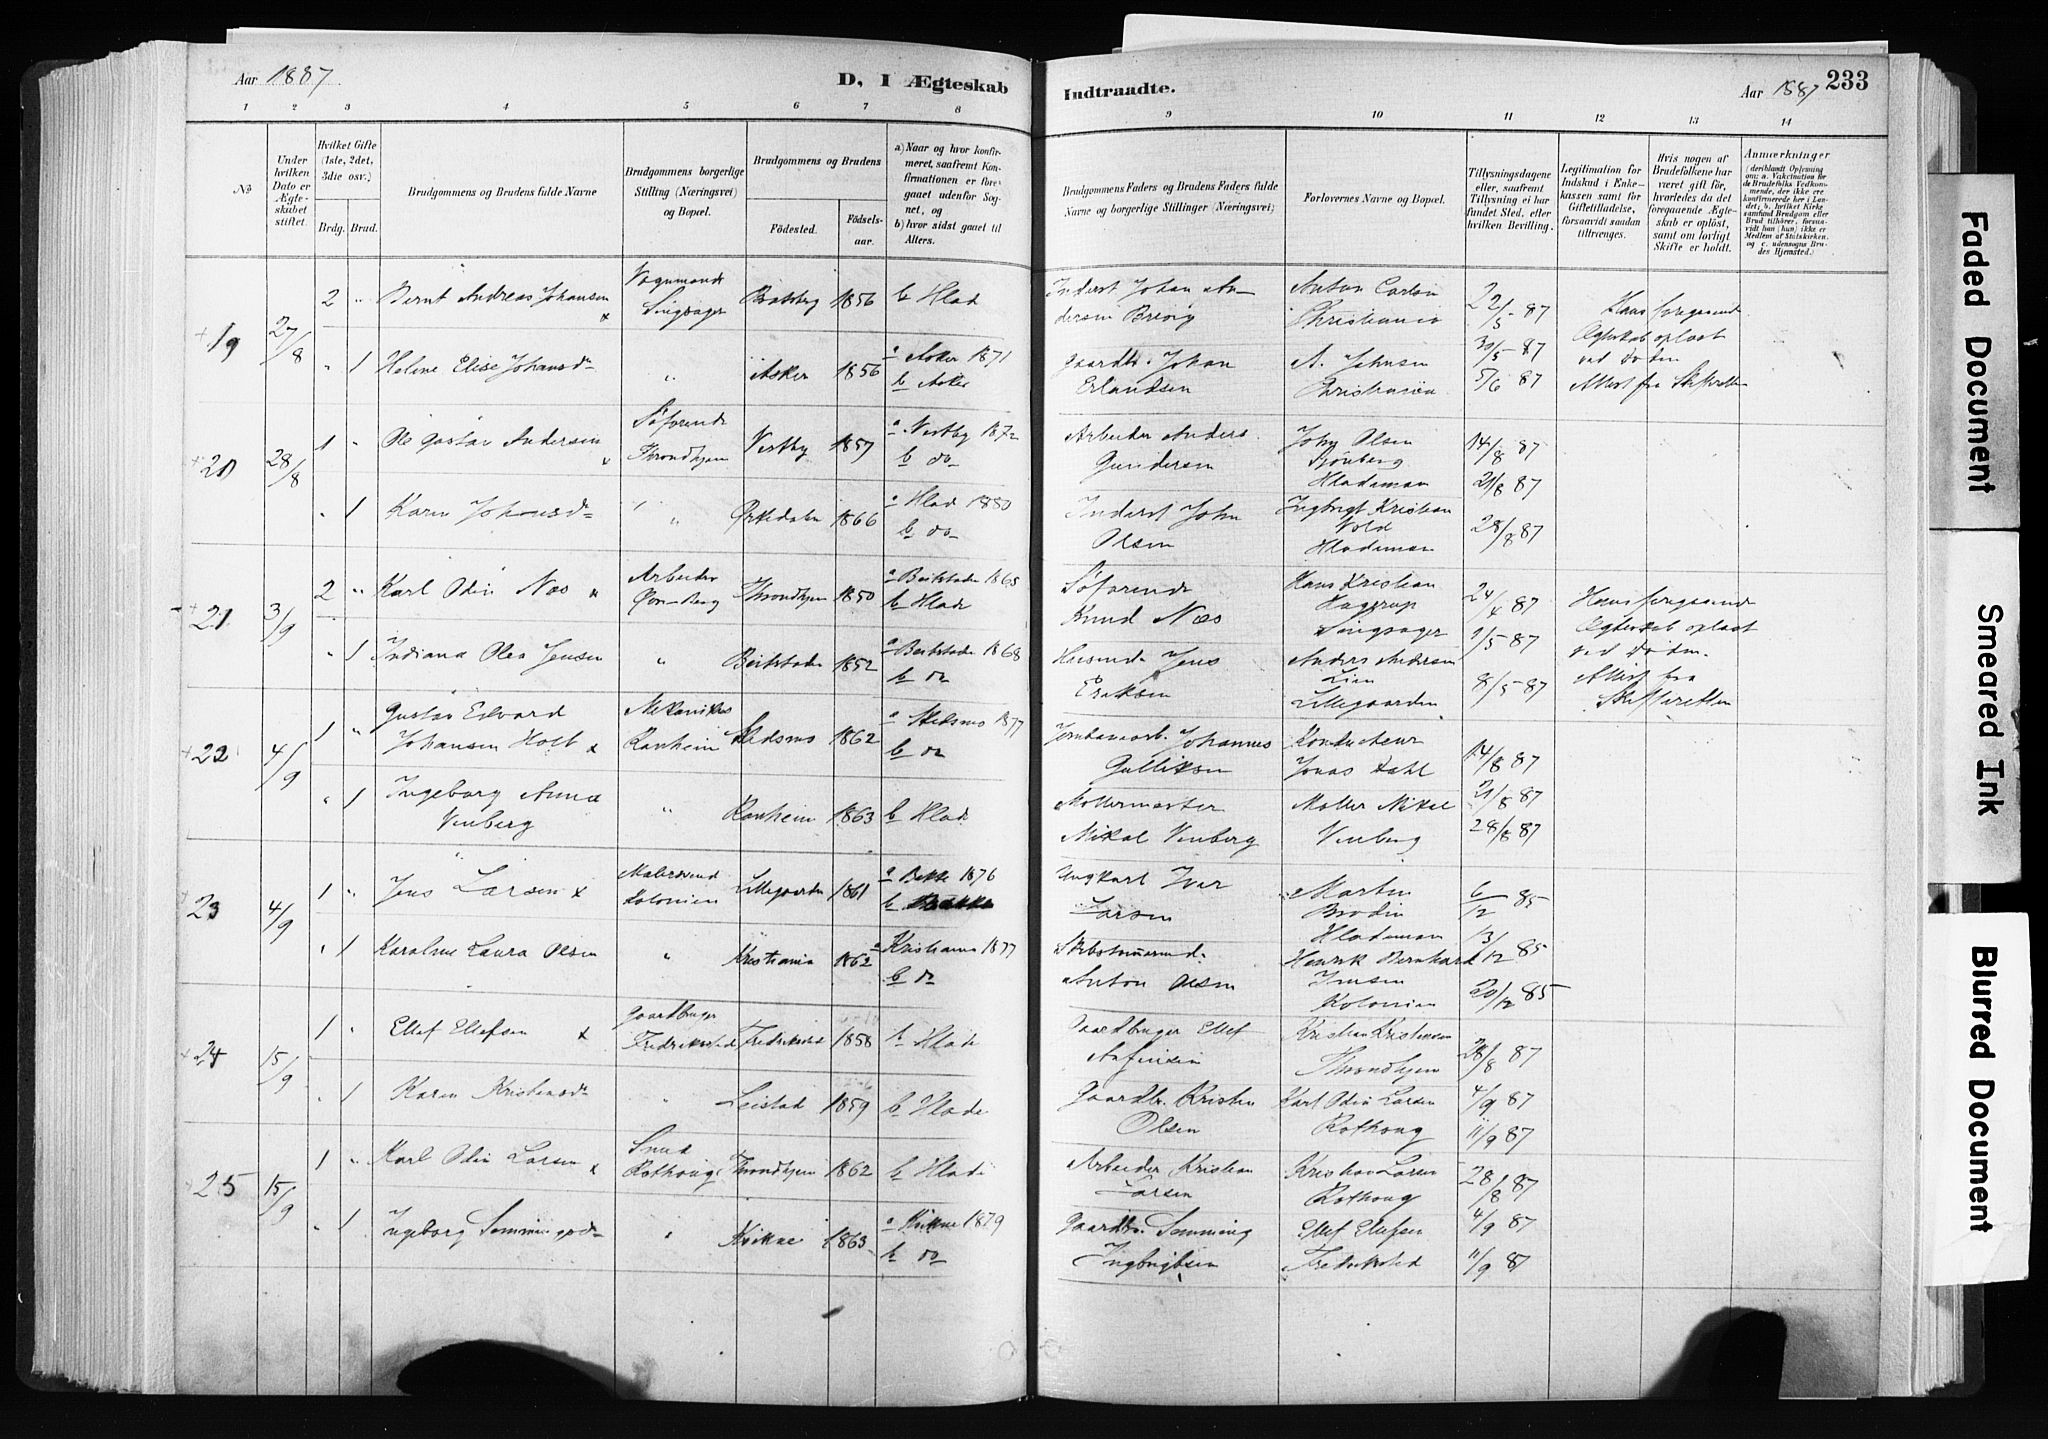 Aar 1887
D, I Ægteskab
Indtraadte.
Aar 1887
233
1 2 3 4 5 6 7 8 9 10 11 12 13 14
No
Under hvilken Dato er Ægteskabet stiftet.
Hvilket Gifte (1ste, 2det, 3die osv.)
Brdg. Brud.
Brudgommens og Brudens fulde Navne
Brudgommens borgerlige Stilling (Næringsvei) og Bopæl.
Brudgommens og Brudens
Fødested. Fødselsaar.
a) Naar og hvor konfirmeret, saafremt Konfirmationen er foregaaet udenfor Sognet, og
b) hvor sidst gaaet til Alters.
Brudgommens Faders og Brudens Faders fulde Navne og borgerlige Stillinger (Næringsvei)
Forlovernes Navne og Bopæl.
Tillysningsdagene eller, saafremt Tillysning ei har fundet Sted, efter hvilken Bevilling.
Legitimation for Indskud i Enkekassen samt for Giftetilladelse, forsaavidt saadan tiltrænges.
Hvis nogen af Brudefolkene har været gift før, hvorledes da det foregaaende Ægteskab er opløst, samt om lovligt Skifte er holdt.
Anmærkninger
(deriblandt Oplysning om: a. Vakcination for de Brudefolks Vedkommende, der ikke ere konfirmerede her i Landet, b. hvilket Kirkesamfund Brudgom eller Brud tilhører, forsaavidt han (hun) ikke er Medlem af Statskirken, og c. udensogns Brudes Hjemsted.)
19 27/8 2 " Bernt Andreas Johansen
Singsager 1856 b Hlad
Inderst Johan Andersen
Anton Carlsen
Christiania
22/5 87
Hans foregaaende
Ægteskab opløst
ved Døden
Attest fra Skifteretten
" 1 Helene Elise Johansd.
" Asker 1856 a Asker 1871
b Asker
Gaardbr. Johan
Erlandsen
A. Johnsen
Christiania
30/5 87
5/6 87
20 28/8 1 " Ole Gustav Andersen
Søfarende
Throndhjem Vestby 1857 a Vestby 1872
b do
Arbeider Anders
Gundersen
John Olsen
Hlademoen
14/8 87
21/8 87
" 1 Karen Johansd.
" Ørkedalen 1866 a Hlad 1880
b do
Inderst John
Olsen
Ingbrigt Kristian
Vold
Hlademoen
28/8 87
21 3/9 2 " Karl Odin Næs
Arbeider
Throndhjem 1850 a Beitstaden 1865
b Hlade
Søfarende
Knud Næs
Hans Kristian
Hagerup
Singsager
24/4 87
1/5 87
Hans foregaaende
Ægteskab opløst
ved Døden.
Attest fra
Skifteretten
" 1 Indiana Olea Jensen
" Beitstaden 1852 a Beitstaden 1868
b do
Husmd. Jens
Eriksen
Anders Andersen
Lien
Lillegaarden
8/5 87
22 4/9 1 " Gustav Edvard
Johansen Holt
Mekanikus
Ranheim Skedsmo 1862 a Skedsmo 1877
b do
Jernbanearb. Johannes
Gulliksen
Konducteur
Jonas Dahl
14/8 87
" 1 Ingeborg Anna
Venberg
" Ranheim 1863 b Hlad
Møllermester
Mikal Venberg
Møller Mikal
Venberg
21/8 87
28/8 87
23 4/9 1 " Jens Larsen
Malersvend
Kolonien Lillegaarden 1861 a Bakke 1876
b Bakke
Ungkarl Iver
Larsen
Martin
Brodin
Hlademoen
6/12 85
" 1 Karoline Laura Olsen
" Kristiania 1862 a Kristiania 1877
b do
Anton Olsen
Henrik Bernhard
Jensen
Kolonien
13/12 85
20/12 85
24 15/9 1 " Ellef Ellefsen
Gaardbruger
Fredriksted Fredriksted 1858 b Hlade
Gaardbruger Ellef
Anfinsen
Kristian Kristensen
Throndhjem
28/8 87
" 1 Karen Kristensd.
" Leistad 1859 b Hlade
Gaardbr. Kristen
Olsen
Karl Odin Larsen
Rothoug
4/9 87
11/9 87
25 15/9 1 " Karl Odin Larsen
Smed
Rothoug Throndhjem 1862 b Hlade
Arbeider Kristian
Larsen
Kristian Larsen
Rothoug
28/8 87
" 1 Ingeborg
" Kvikne 1863 a Kvikne 1879
b do
Gaardbr. Semming
Ingbrigtsen
Ellef Ellefsen
Fredriksted
4/9 87
11/9 87
Faded Document
Smeared Ink
Blurred Document